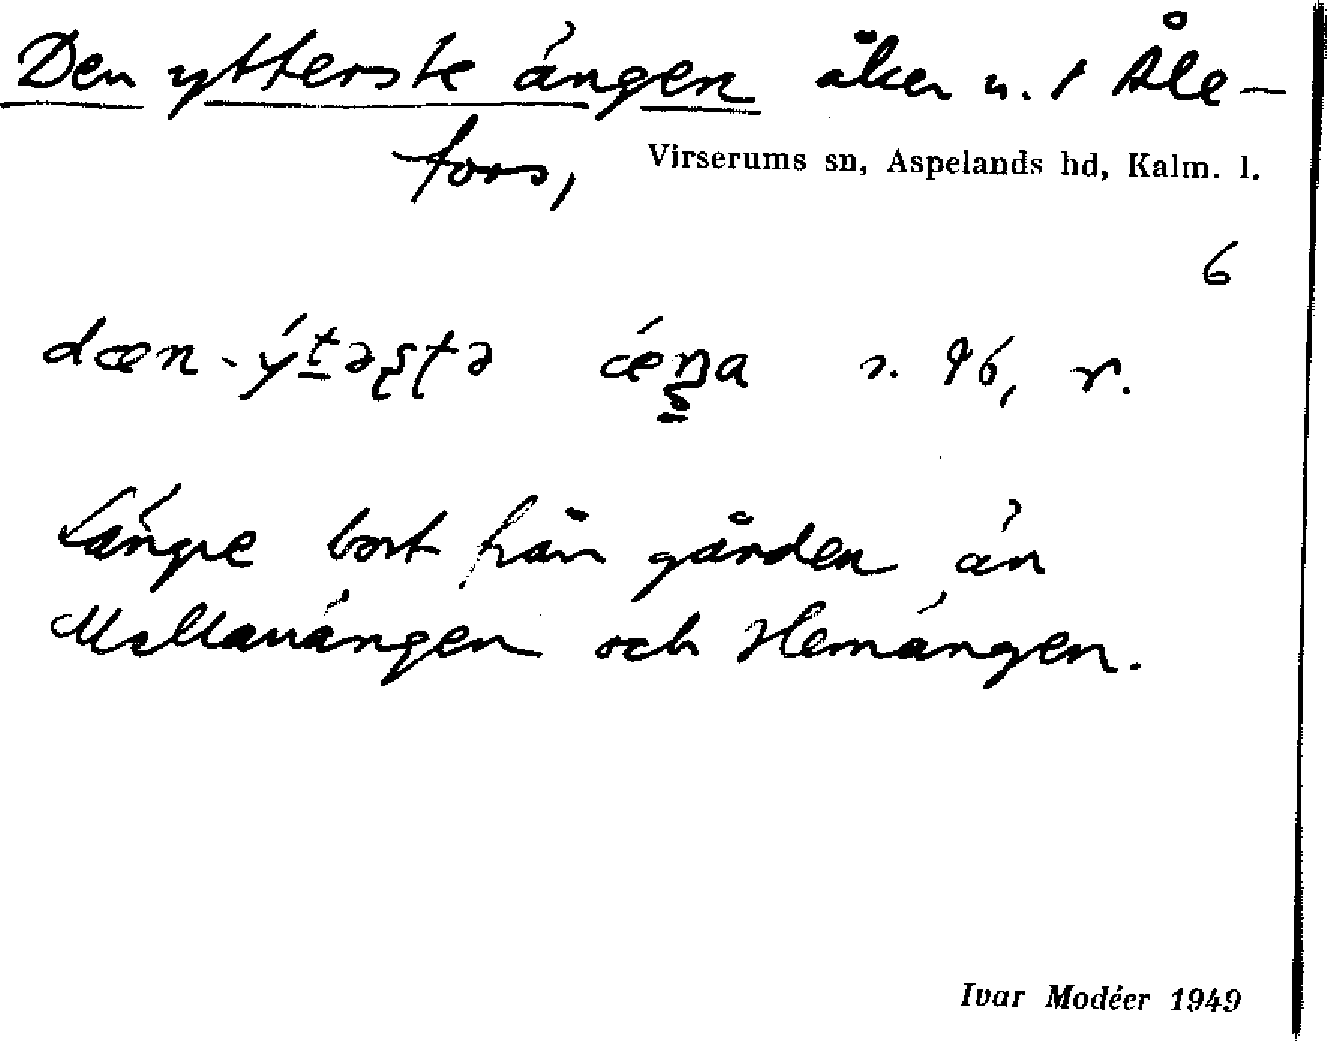 Den ytterste ängen åker u. 1 Åle-
fors, Virserums sn, Aspelands hd, Kalm. l.
6
dæn - ýtəʂʈə ǽŋa s. 96, r.
Längre bort från gården än
Mellanängen och Hemängen.
Ivar Modéer 1949